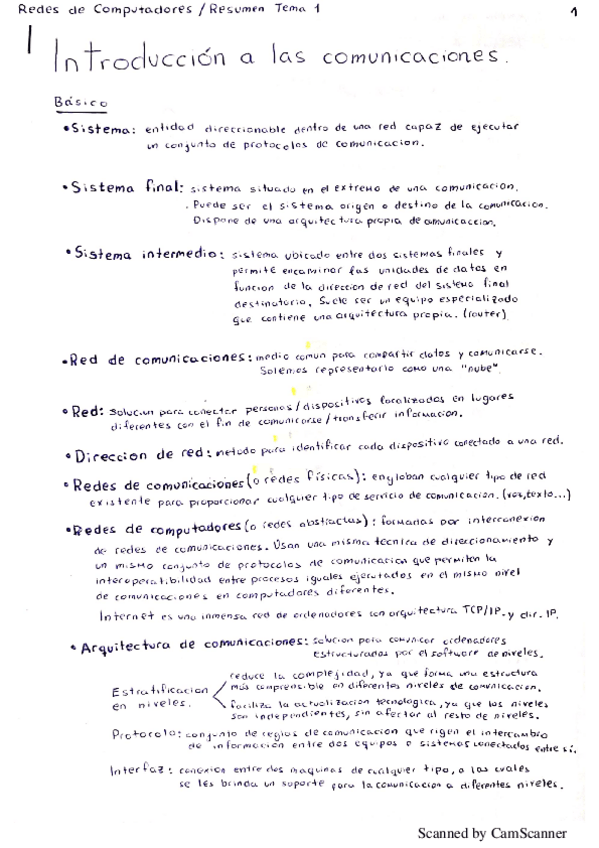 Redes de Computadores / Resumen Tema 1
1
Introducción a las comunicaciones.
Básico
• Sistema: entidad direccionable dentro de una red capaz de ejecutar
un conjunto de protocolos de comunicacion.
• Sistema final: sistema situado en el extremo de una comunicacion.
. Puede ser el sistema origen o destino de la comunicacion.
Dispone de una arquitectura propia de comunicaccion.
• Sistema intermedio: sistema ubicado entre dos sistemas finales y
permite encaminar las unidades de datos en
funcion de la direccion de red del sistema final
destinatario. Suele ser un equipo especializado
que contiene una arquitectura propia. (router)
• Red de comunicaciones: medio comun para compartir datos y comunicarse.
Solemos representarlo como una "nube".
• Red: solucion para conectar personas/dispositivos localizados en lugares
diferentes con el fin de comunicarse/transferir informacion.
• Direccion de red: metodo para identificar cada dispositivo conectado a una red.
• Redes de comunicaciones (o redes físicas): engloban cualquier tipo de red
existente para proporcionar cualquier tipo de servicio de comunicacion. (voz, texto...)
• Redes de computadores (o redes abstractas): formadas por interconexion
de redes de comunicaciones. Usan una misma tecnica de direccionamiento y
un mismo conjunto de protocolos de comunicacion que permiten la
interoperatibilidad entre procesos iguales ejecutados en el mismo nivel
de comunicaciones en computadores diferentes.
Internet es una inmensa red de ordenadores con arquitectura TCP/IP. y dir. IP.
• Arquitectura de comunicaciones: solucion para comunicar ordenadores
estructurados por el software de niveles.
Estratificacion
en niveles.
reduce la complejidad, ya que forma una estructura
más comprensible en diferentes niveles de comunicacion.
faciliza la actualizacion tecnologica, ya que los niveles
son independientes, sin afectar al resto de niveles.
Protocolo: conjunto de reglas de comunicacion que rigen el intercambio
de informacion entre dos equipos o sistemas conectados entre sí.
Interfaz: conexion entre dos maquinas de cualquier tipo, a las cuales
se les brinda un soporte para la comunicacion a diferentes niveles.
Scanned by CamScanner